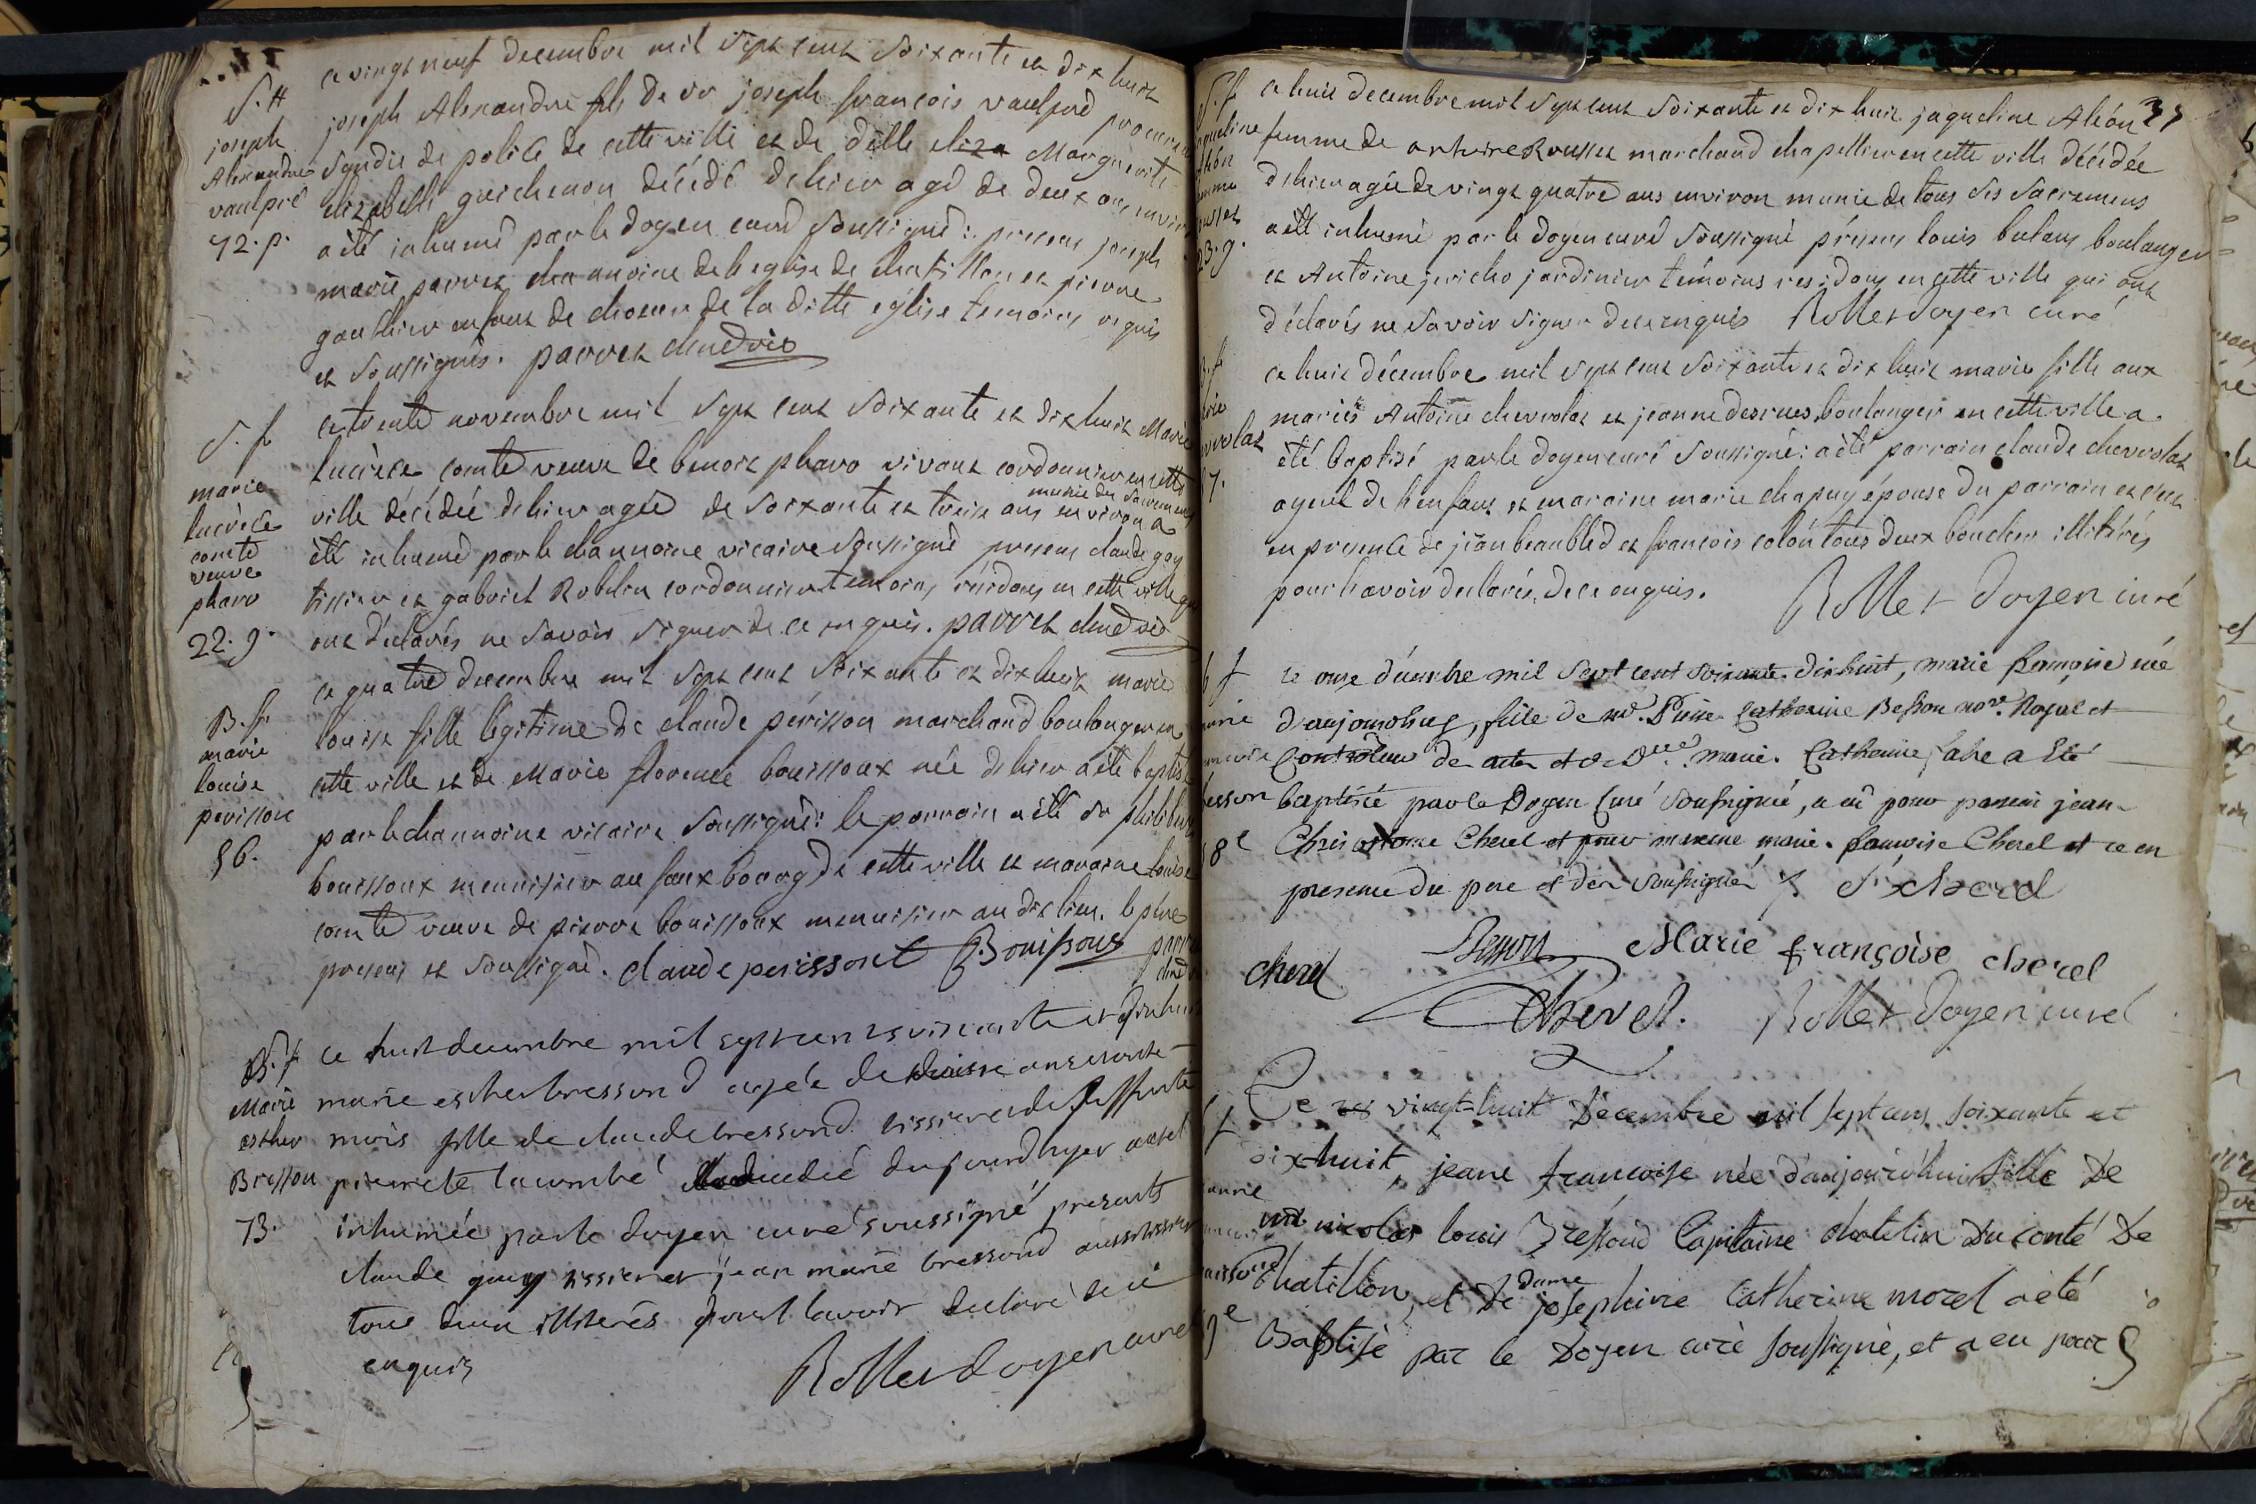 ce vingt neuf decembre mil sept cent soixante et dix huit
joseph Alexandre fils de sr joseph francois vaulpré procureur
syndic de police de cette ville et de dlle eliza Marguerite
elizabeth guichenon décédé dehier agé de deux ans environ
a été inhumé par le doyen curé soussigné : presens joseph
marie parret channoine de leglise de chatillon et pierre
gauthier enfant de choeur de la ditte église temoins requis
et soussignés. parret chne vic
S. H
joseph
Alexandre
vaulpré
72. p.
ce trente novembre mil sept cent soixante et dix huit Marie
lucrèce comte veuve de benoit pharo vivant cordonnier en cette
ville décédée dehier agée de soixante et treize ans environ munie des sacremens a
été inhumé par le channoine vicaire soussigné presens claude goy
tissier et gabriel Robelin cordonnier temoins résidans en cette ville qui
ont déclarés ne savoir signer de ce enquis. parret chne vic
S. f
marie
lucrèce
comte
veuve
pharo
22. g.
ce quatre decembre mil sept cent soixante et dix huit marie
louise fille légitime de claude périsson marchand boulanger en
cette ville et de Marie florence bouissoux née dehier a été baptisé
par le channoine vicaire soussigné : le parrain a été sr philibert
bouissoux menuisier au faux bourg de cette ville et maraine louise
comte veuve de pierre bouissoux menuisier au dit lieu. le père
present et soussigné. claude perissont Bouissous parret
chne v
B. f.
marie
louise
perisson
56.
ce huit decembre mil sept cent soixante et dix huit
marie esther bressond agée de ans
mois fille de claude bressond tissier et de
pierrete lacombe decedée du jourdhyer a été
inhumée par le doyen curé soussigné presents
claude goy tissier et jean marie bressond aussi tissier
tous deux illiterés pour lavoir declaré de ce
enquis Rollet doyen curé
Marie
esther
Bresson
73.
ce huit decembre mil sept cent soixante et dix huit jaqueline Aléon
femme de antoine Rousset marchand chapellier en cette ville décédée
dehier agée de vingt quatre ans environ munie de tous ses sacremens
a été inhumé par le doyen curé soussigné présens louis bulans boulanger
et Antoine jericho jardinier témoins residans en cette ville qui ont
déclarés ne savoir signer de ce enquis Rollet doyen curé
S. f
23. g.
ce huit décembre mil sept cent soixante et dix huit marie fille aux
mariés Antoine chevrolat et jeanne desrues boulanger en cette ville a
été baptisé par le doyen curé soussigné : a été parrain claude chevrolat
ayeul de lenfant et maraine marie chapuy épouse du parrain et ceux
en presence de jean beaublèd et francois colón tous deux bouchers illitérés
pour lavoir declarés, de ce enquis. Rollet doyen curé
B. f
7.
ce onze décembre mil sept cent soixante dix huit, marie françoise née
d'aujourd'huy, fille de mr. Pierre Catherine Besson nore. Royal et
Controlleur des actes et de Dlle marie Catherine fabre a été
baptisée par le Doyen Curé soussigné, a eu pour parrein jean
Chrisostome Cherel et pour mareine marie françoise Cherel et ce en
presence du pere et des soussignés /. Cherel
Besson Marie françoise cherel
cherel
Cherel. Rollet doyen curé
b f
besson
8e
Ce vingt-huit Decembre mil sept cent soixante et
dix-huit, jeane francoise née d'aujourd'hui fille De
mr nicolas louis Bressoud Capitaine chatelin Du conté De
Chatillon, et De dame josephine Catherine morel a été
Baptisé par le Doyen curé soussigné, et a eu pour